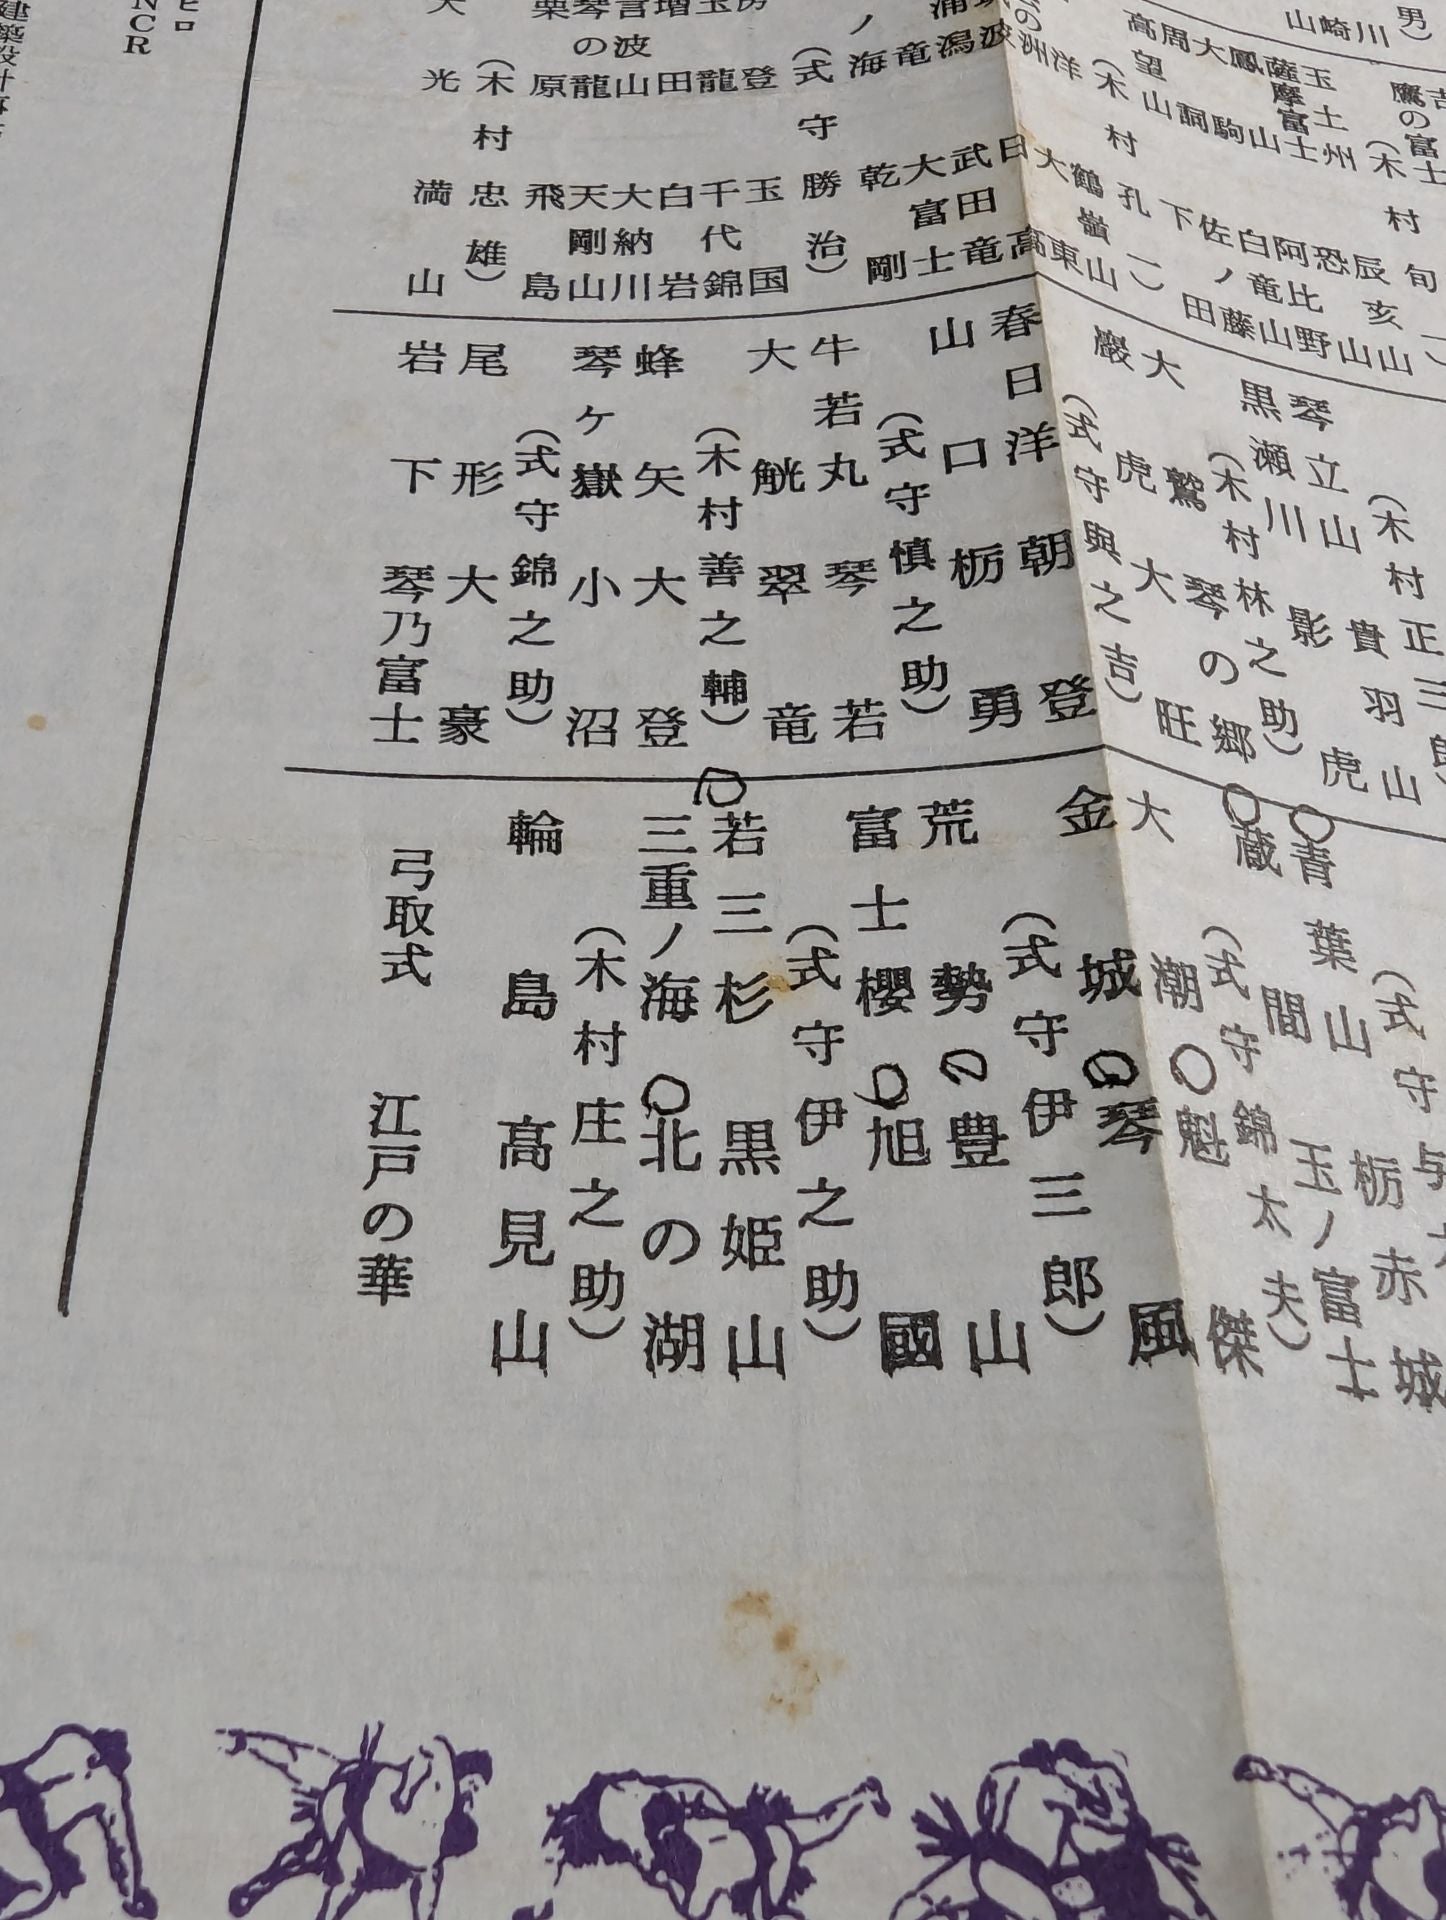 男）
川
崎
山
吉
鷹の富士
（木村
旬
一）
玉土州
薩摩富士
鳳
大
周
高望山
（木村孔一）
山
駒
恐
辰亥山
阿比野
白竜山
佐ノ藤
下
田
鶴嶺山
大東
洋
洲
日高
武田竜
大富士
乾
剛
ノ海
竜
潟
波
（式守勝治）
登
玉国
龍
千代錦
田
白岩
波山
大納川
琴の龍
天剛山
栗原
飛島
（木村忠雄）
大光
満山
（木村正三郎）
貴羽山
琴立山
影虎
黒瀬川
（木村林之助）
琴の郷
鷲
大旺
大虎
巖
（式守與之吉）
春日洋
朝登
山口
栃勇
（式守慎之助）
牛若丸
琴若
大觥
翠竜
（木村善之輔）
蜂矢
大登
琴ケ嶽
小沼
（式守錦之助）
尾形
大豪
岩下
琴乃富士
（式守与太
赤城
栃
青葉山
玉ノ富士
蔵間
（式守錦太夫）
大潮
魁傑
金城
琴風
（式守伊三郎）
荒勢
豊山
富士櫻
旭國
（式守伊之助）
若三杉
黒姫山
三重ノ海
北の湖
（木村庄之助）
輪島
高見山
弓取式
江戸の華
ヒロ
NCR
建築設計事